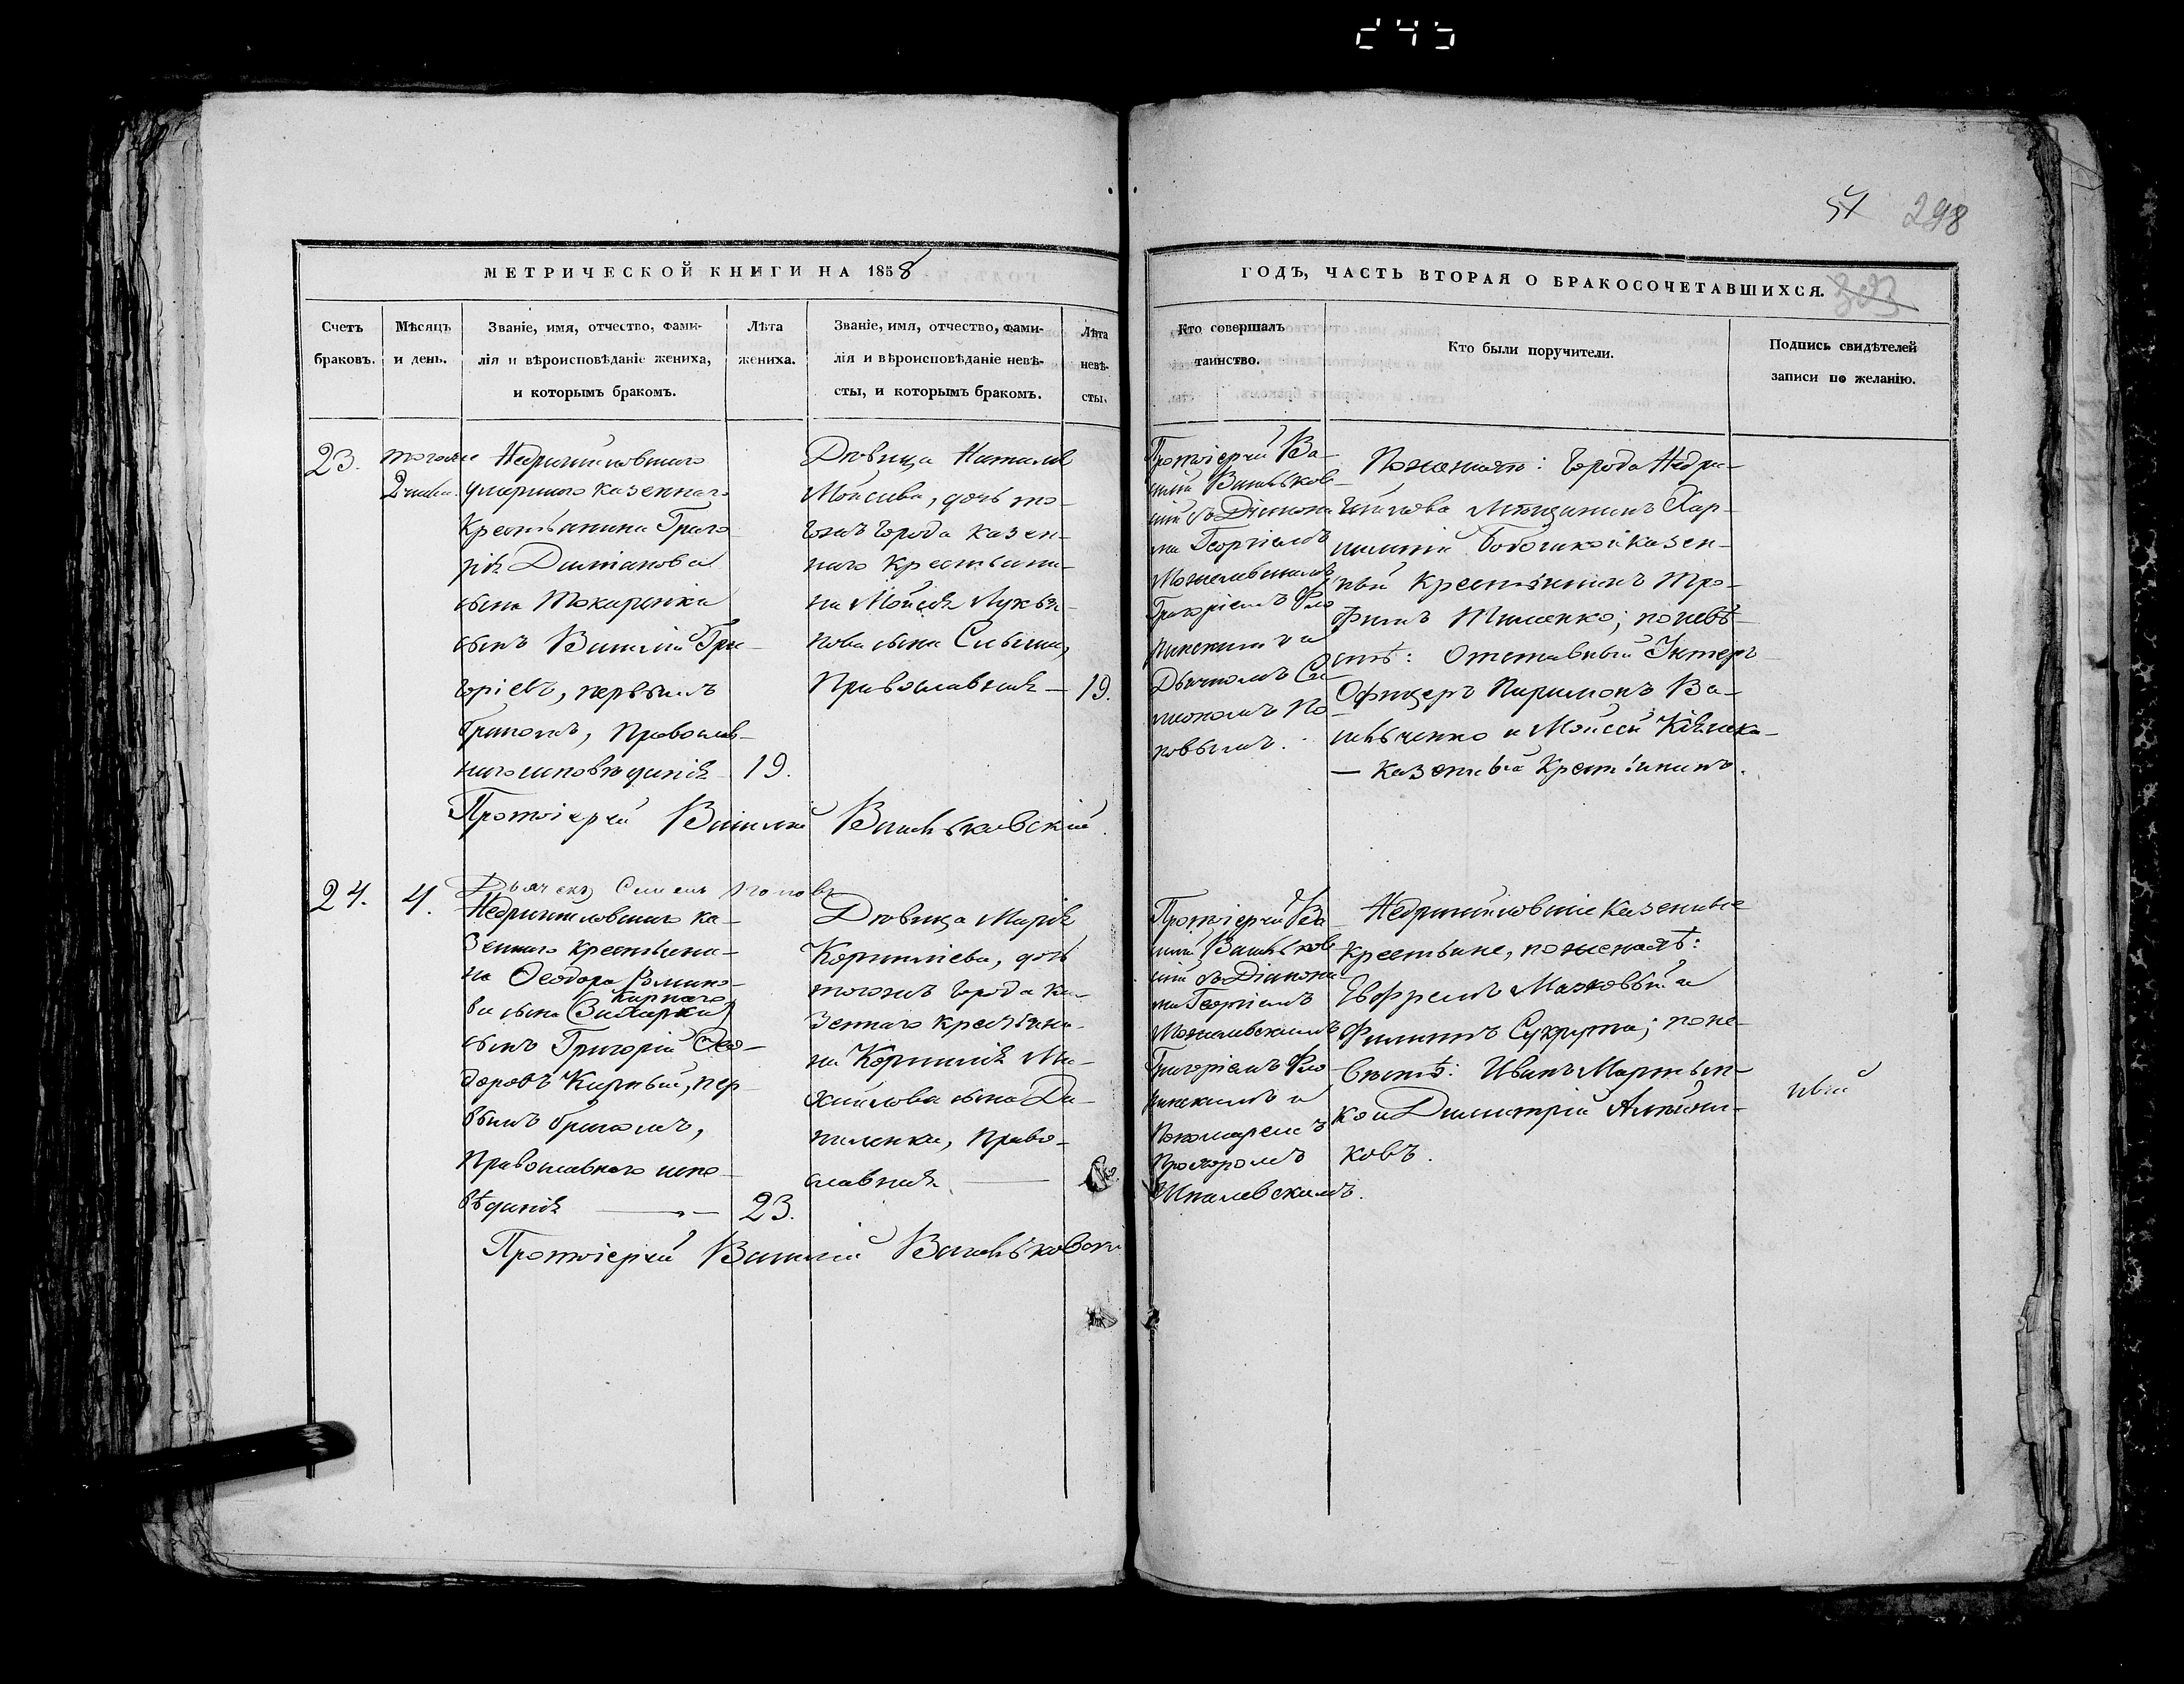 245
54 298
МЕТРИЧЕСКОЙ КНИГИ НА 1858
ГОДЪ, ЧАСТЬ ВТОРАЯ О БРАКОСОЧЕТАВШИХСЯ.
Счетъ
браковъ.
Мѣсяцъ
и день.
Званіе, имя, отчество, фами-
лія и вѣроисповѣданіе жениха,
и которымъ бракомъ.
Лѣта
жениха.
Званіе, имя, отчество, фами-
лія и вѣроисповѣданіе невѣ-
сты, и которымъ бракомъ.
Лѣта
невѣ-
сты.
Кто совершалъ
таинство.
Кто были поручители.
Подпись свидѣтелей
записи по желанію.
23.
тогоже
2 числа.
Недригайловскаго
умершаго казеннаго
крестьянина Григо
рія Даміанова
сына Токаренка
сынъ Василій Гри-
горіевъ, первымъ
бракомъ, Православ-
наго исповѣданія
19.
Дѣвица Наталія
Мойсеева, дочь то-
гожъ города казен-
наго крестьяни-
на Мойсея Лукья-
нова сына
Православная — 19.
Протоіерей Ва-
силій Васильков-
скій съ Діакона
ми Георгіемъ
Григоріемъ Фло
ринскимъ и
Дьячкомъ Си-
меономъ По
повымъ.
По женихѣ: города Недри-
гайлова мѣщанинъ Хар-
лампій и казен-
ный крестьянинъ Тро-
фимъ Тимченко; по невѣ-
стѣ: Отставный Унтеръ
Офицеръ Парамонъ Ва-
сильченко и Мойсей
— казенный крестьянинъ.
Протоіерей Василій Васильковскій.
Дьячекъ Симеонъ Поповъ
24.
4.
Недригайловскаго ка-
зеннаго крестьяни-
на Ѳеодора Романо-
ва сына
Кирнаго
сынъ Григорій Ѳео-
доровъ Кирный, пер
вымъ бракомъ,
Православнаго испо-
вѣданія — 23.
Дѣвица Марія
Корнилieва, дочь
тогожъ города ка-
зеннаго крестьяни-
на Корнилія Ми-
хайлова сына Да-
ниленка, Право-
славная —
Протоіерей Ва
силій Васильков
скій съ Діакона
ми Георгіемъ
Григоріемъ Фло
ринскимъ и
Пономаремъ
Прохоромъ
Шпалевскимъ.
Недригайловскіе казенные
крестьяне, по женихѣ:
Евфремъ и
Филиппъ Сукрута; по не-
вѣстѣ: Иванъ Мартын-
ко и Димитрій
ковъ.
Протоіерей Василій Васильковскі